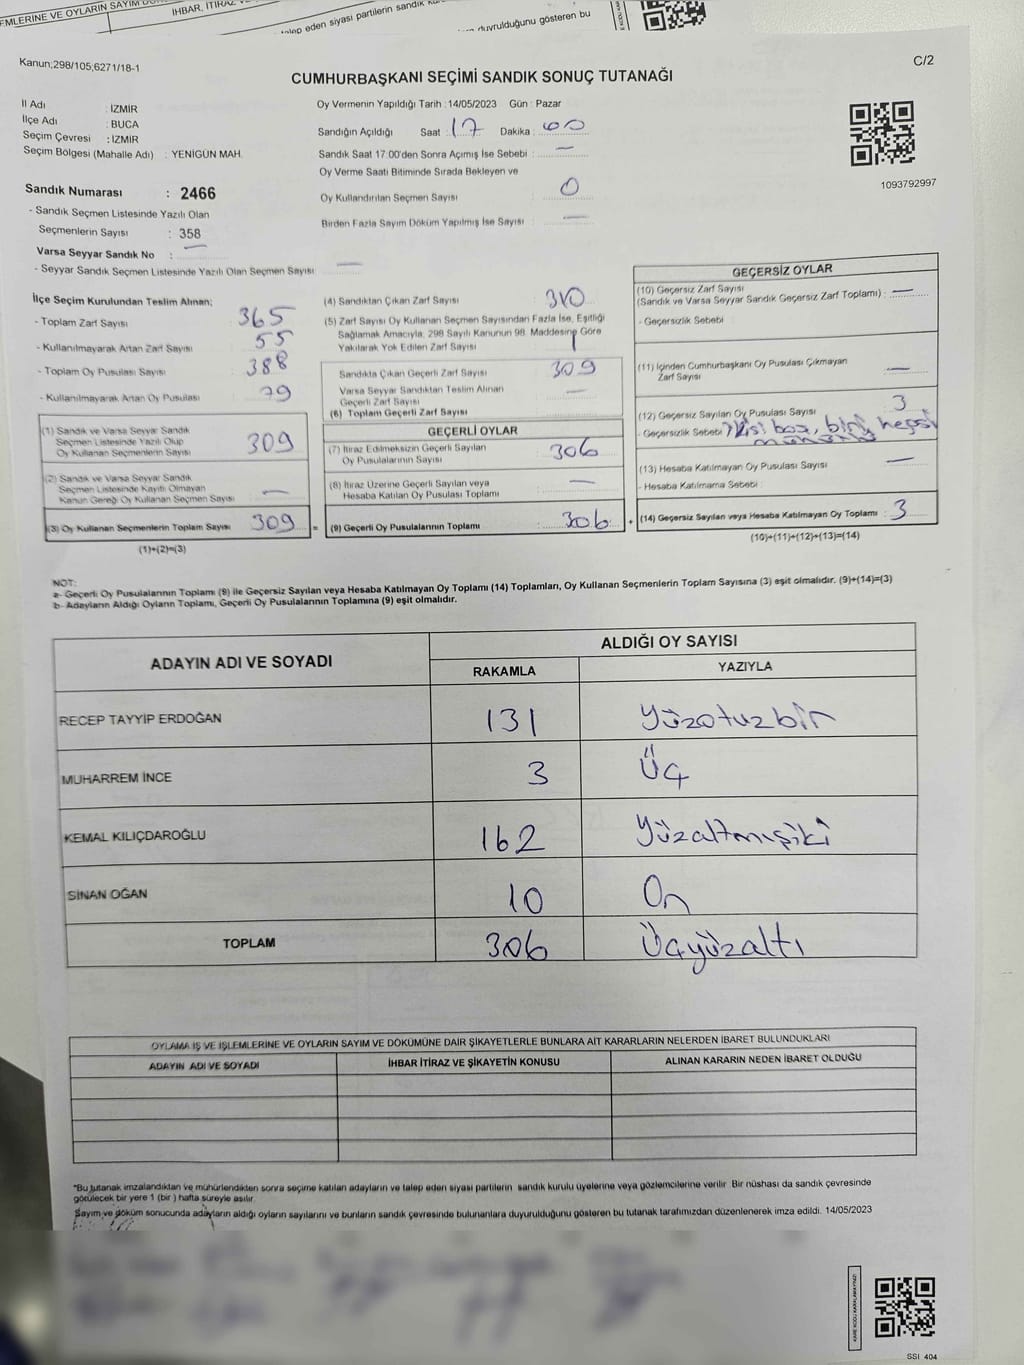 EMLERİNE VE OYLARIN SAYIM
İHBAR, İTİRAZ
talep eden siyası partilerin sandık
duyrulduğunu gösteren bu
Kanun;298/105,6271/18-1
C/2
CUMHURBAŞKANI SEÇİMİ SANDIK SONUÇ TUTANAĞI
İl Adı : İZMİR
İlçe Adı : BUCA
Seçim Çevresi : İZMİR
Seçim Bölgesi (Mahalle Adı) : YENİGÜN MAH.
Oy Vermenin Yapıldığı Tarih : 14/05/2023 Gün : Pazar
Sandığın Açıldığı Saat : 17 Dakika : 00
Sandık Saat 17:00'den Sonra Açımış İse Sebebi : —
Oy Verme Saati Bitiminde Sırada Bekleyen ve
Oy Kullandırılan Seçmen Sayısı 0
Birden Fazla Sayım Döküm Yapılmış İse Sayısı : —
1093792997
Sandık Numarası : 2466
- Sandık Seçmen Listesinde Yazılı Olan
Seçmenlerin Sayısı : 358
Varsa Seyyar Sandık No : —
- Seyyar Sandık Seçmen Listesinde Yazılı Olan Seçmen Sayısı —
İlçe Seçim Kurulundan Teslim Alınan;
- Toplam Zarf Sayısı 365
- Kullanılmayarak Artan Zarf Sayısı 55
- Toplam Oy Pusulası Sayısı 388
- Kullanılmayarak Artan Oy Pusulası 79
(1) Sandık ve Varsa Seyyar Sandık
Seçmen Listesinde Yazılı Olup
Oy Kullanan Seçmenlerin Sayısı 309
(2) Sandık ve Varsa Seyyar Sandık
Seçmen Listesinde Kayıtlı Olmayan
Kanun Gereği Oy Kullanan Seçmen Sayısı —
(3) Oy Kullanan Seçmenlerin Toplam Sayısı 309 =
(1)+(2)=(3)
(4) Sandıktan Çıkan Zarf Sayısı 310
(5) Zarf Sayısı Oy Kullanan Seçmen Sayısından Fazla İse, Eşitliği
Sağlamak Amacıyla, 298 Sayılı Kanunun 98. Maddesine Göre
Yakılarak Yok Edilen Zarf Sayısı 1
Sandıkta Çıkan Geçerli Zarf Sayısı 309
Varsa Seyyar Sandıktan Teslim Alınan
Geçerli Zarf Sayısı —
(6) Toplam Geçerli Zarf Sayısı
GEÇERLİ OYLAR
(7) İtiraz Edilmeksizin Geçerli Sayılan
Oy Pusulalarının Sayısı 306
(8) İtiraz Üzerine Geçerli Sayılan veya
Hesaba Katılan Oy Pusulası Toplamı —
(9) Geçerli Oy Pusulalarının Toplamı : 306 +
GEÇERSİZ OYLAR
(10) Geçersiz Zarf Sayısı
(Sandık ve Varsa Seyyar Sandık Geçersiz Zarf Toplamı) : —
- Geçersizlik Sebebi :
(11) İçinden Cumhurbaşkanı Oy Pusulası Çıkmayan
Zarf Sayısı —
(12) Geçersiz Sayılan Oy Pusulası Sayısı 3
- Geçersizlik Sebebi : İkisi boş, biri, hepsi
(13) Hesaba Katılmayan Oy Pusulası Sayısı —
- Hesaba Katılmama Sebebi :
(14) Geçersiz Sayılan veya Hesaba Katılmayan Oy Toplamı : 3
(10)+(11)+(12)+(13)=(14)
NOT:
a- Geçerli Oy Pusulalarının Toplamı (9) ile Geçersiz Sayılan veya Hesaba Katılmayan Oy Toplamı (14) Toplamları, Oy Kullanan Seçmenlerin Toplam Sayısına (3) eşit olmalıdır. (9)+(14)=(3)
b- Adayların Aldığı Oyların Toplamı, Geçerli Oy Pusulalarının Toplamına (9) eşit olmalıdır.
ADAYIN ADI VE SOYADI
ALDIĞI OY SAYISI
RAKAMLA YAZIYLA
RECEP TAYYİP ERDOĞAN 131 Yüzotuzbir
MUHARREM İNCE 3 Üç
KEMAL KILIÇDAROĞLU 162 Yüzaltmışiki
SİNAN OĞAN 10 On
TOPLAM 306 Üçyüzaltı
OYLAMA İŞ VE İŞLEMLERİNE VE OYLARIN SAYIM VE DÖKÜMÜNE DAİR ŞİKAYETLERLE BUNLARA AİT KARARLARIN NELERDEN İBARET BULUNDUKLARI
ADAYIN ADI VE SOYADI İHBAR İTİRAZ VE ŞİKAYETİN KONUSU ALINAN KARARIN NEDEN İBARET OLDUĞU
*Bu tutanak imzalandıktan ve mühürlendikten sonra seçime katılan adayların ve talep eden siyası partilerin sandık kurulu üyelerine veya gözlemcilerine verilir. Bir nüshası da sandık çevresinde
görülecek bir yere 1 (bir ) hafta süreyle asılır.
Sayım ve döküm sonucunda adayların aldığı oyların sayılarını ve bunların sandık çevresinde bulunanlara duyurulduğunu gösteren bu tutanak tarafımızdan düzenlenerek imza edildi. 14/05/2023
SSI 404